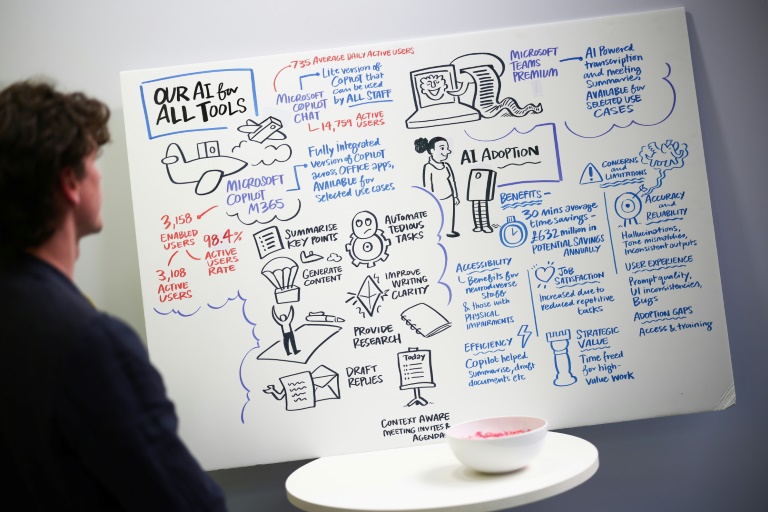 OUR AI for
ALL TOOLS
735 AVERAGE DAILY ACTIVE USERS
MICROSOFT
COPILOT
CHAT
Lite version of
COPILOT that
can be used
by ALL STAFF
14,759 ACTIVE
USERS
Fully integrated
version of COPILOT
across OFFICE apps,
AVAILABLE for
selected use cases
MICROSOFT
COPILOT
M365
3,158
ENABLED
USERS
98.4%
ACTIVE
USERS
RATE
3,108
ACTIVE
USERS
SUMMARISE
KEY POINTS
AUTOMATE
TEDIOUS
TASKS
GENERATE
CONTENT
IMPROVE
WRITING
CLARITY
PROVIDE
RESEARCH
DRAFT
REPLIES
Today
CONTEXT AWARE
MEETING INVITES &
AGENDA
MICROSOFT
TEAMS
PREMIUM
AI Powered
transcription
and meeting
Summaries,
AVAILABLE for
SELECTED USE
CASES
AI ADOPTION
BENEFITS–
30 mins average
time savings –
£632 million in
POTENTIAL SAVINGS
ANNUALLY
ACCESSIBILITY
Benefits for
neurodiverse
staff
& those with
PHYSICAL
IMPAIRMENTS
JOB
SATISFACTION
Increased due to
reduced repetitive
tasks
EFFICIENCY
Copilot helped
summarise, draft
documents etc
STRATEGIC
VALUE
Time freed
for high-
value work
CONCERNS
and
LIMITATIONS
ACCURACY
and
RELIABILITY
Hallucinations,
Tone mismatches,
inconsistent outputs
USER EXPERIENCE
Prompt quality,
UI inconsistencies,
Bugs
ADOPTION GAPS
Access & training